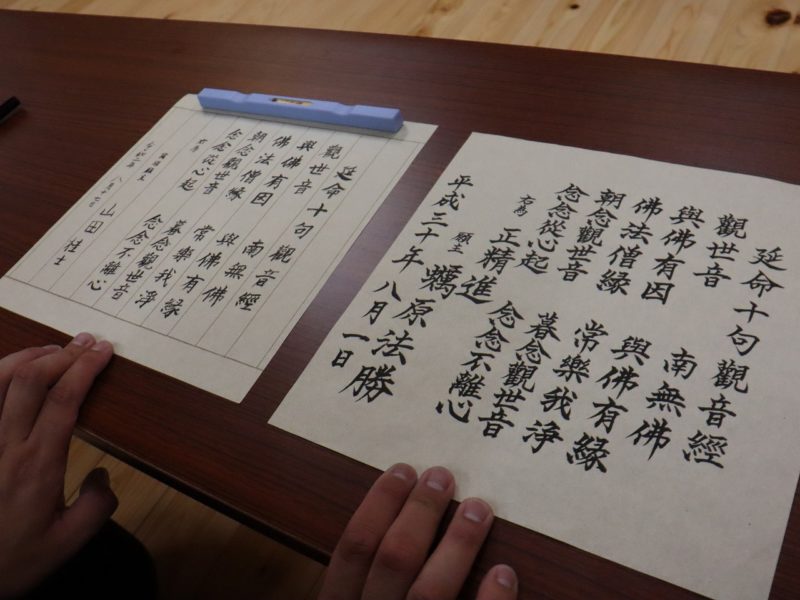 延命十句觀音經
觀世音 南無佛
與佛有因 與佛有緣
佛法僧緣 常樂我淨
朝念觀世音 暮念觀世音
念念從心起 念念不離心
右為 正精進
願主 蠣原法勝
平成三十年八月一日
延命十句 觀音經
觀世音 南無佛
與佛有因 與佛有緣
佛法僧緣 常樂我淨
朝念觀世音 暮念觀世音
念念從心起 念念不離心
右為
山田桂士
八月十六日